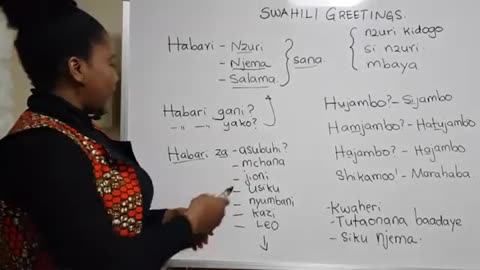 SWAHILI GREETINGS.
Habari - Nzuri
- Njema
- Salama
sana
nzuri kidogo
si nzuri
mbaya
Habari gani?
-"- -"- yako?
Habari za - asubuhi?
- mchana
- jioni
- usiku
- nyumbani
- kazi
- LEO
Hujambo? - Sijambo
Hamjambo? - Hatujambo
Hajambo? - Hajambo
Shikamoo! - Marahaba
- Kwaheri
- Tutaonana baadaye
- Siku njema.